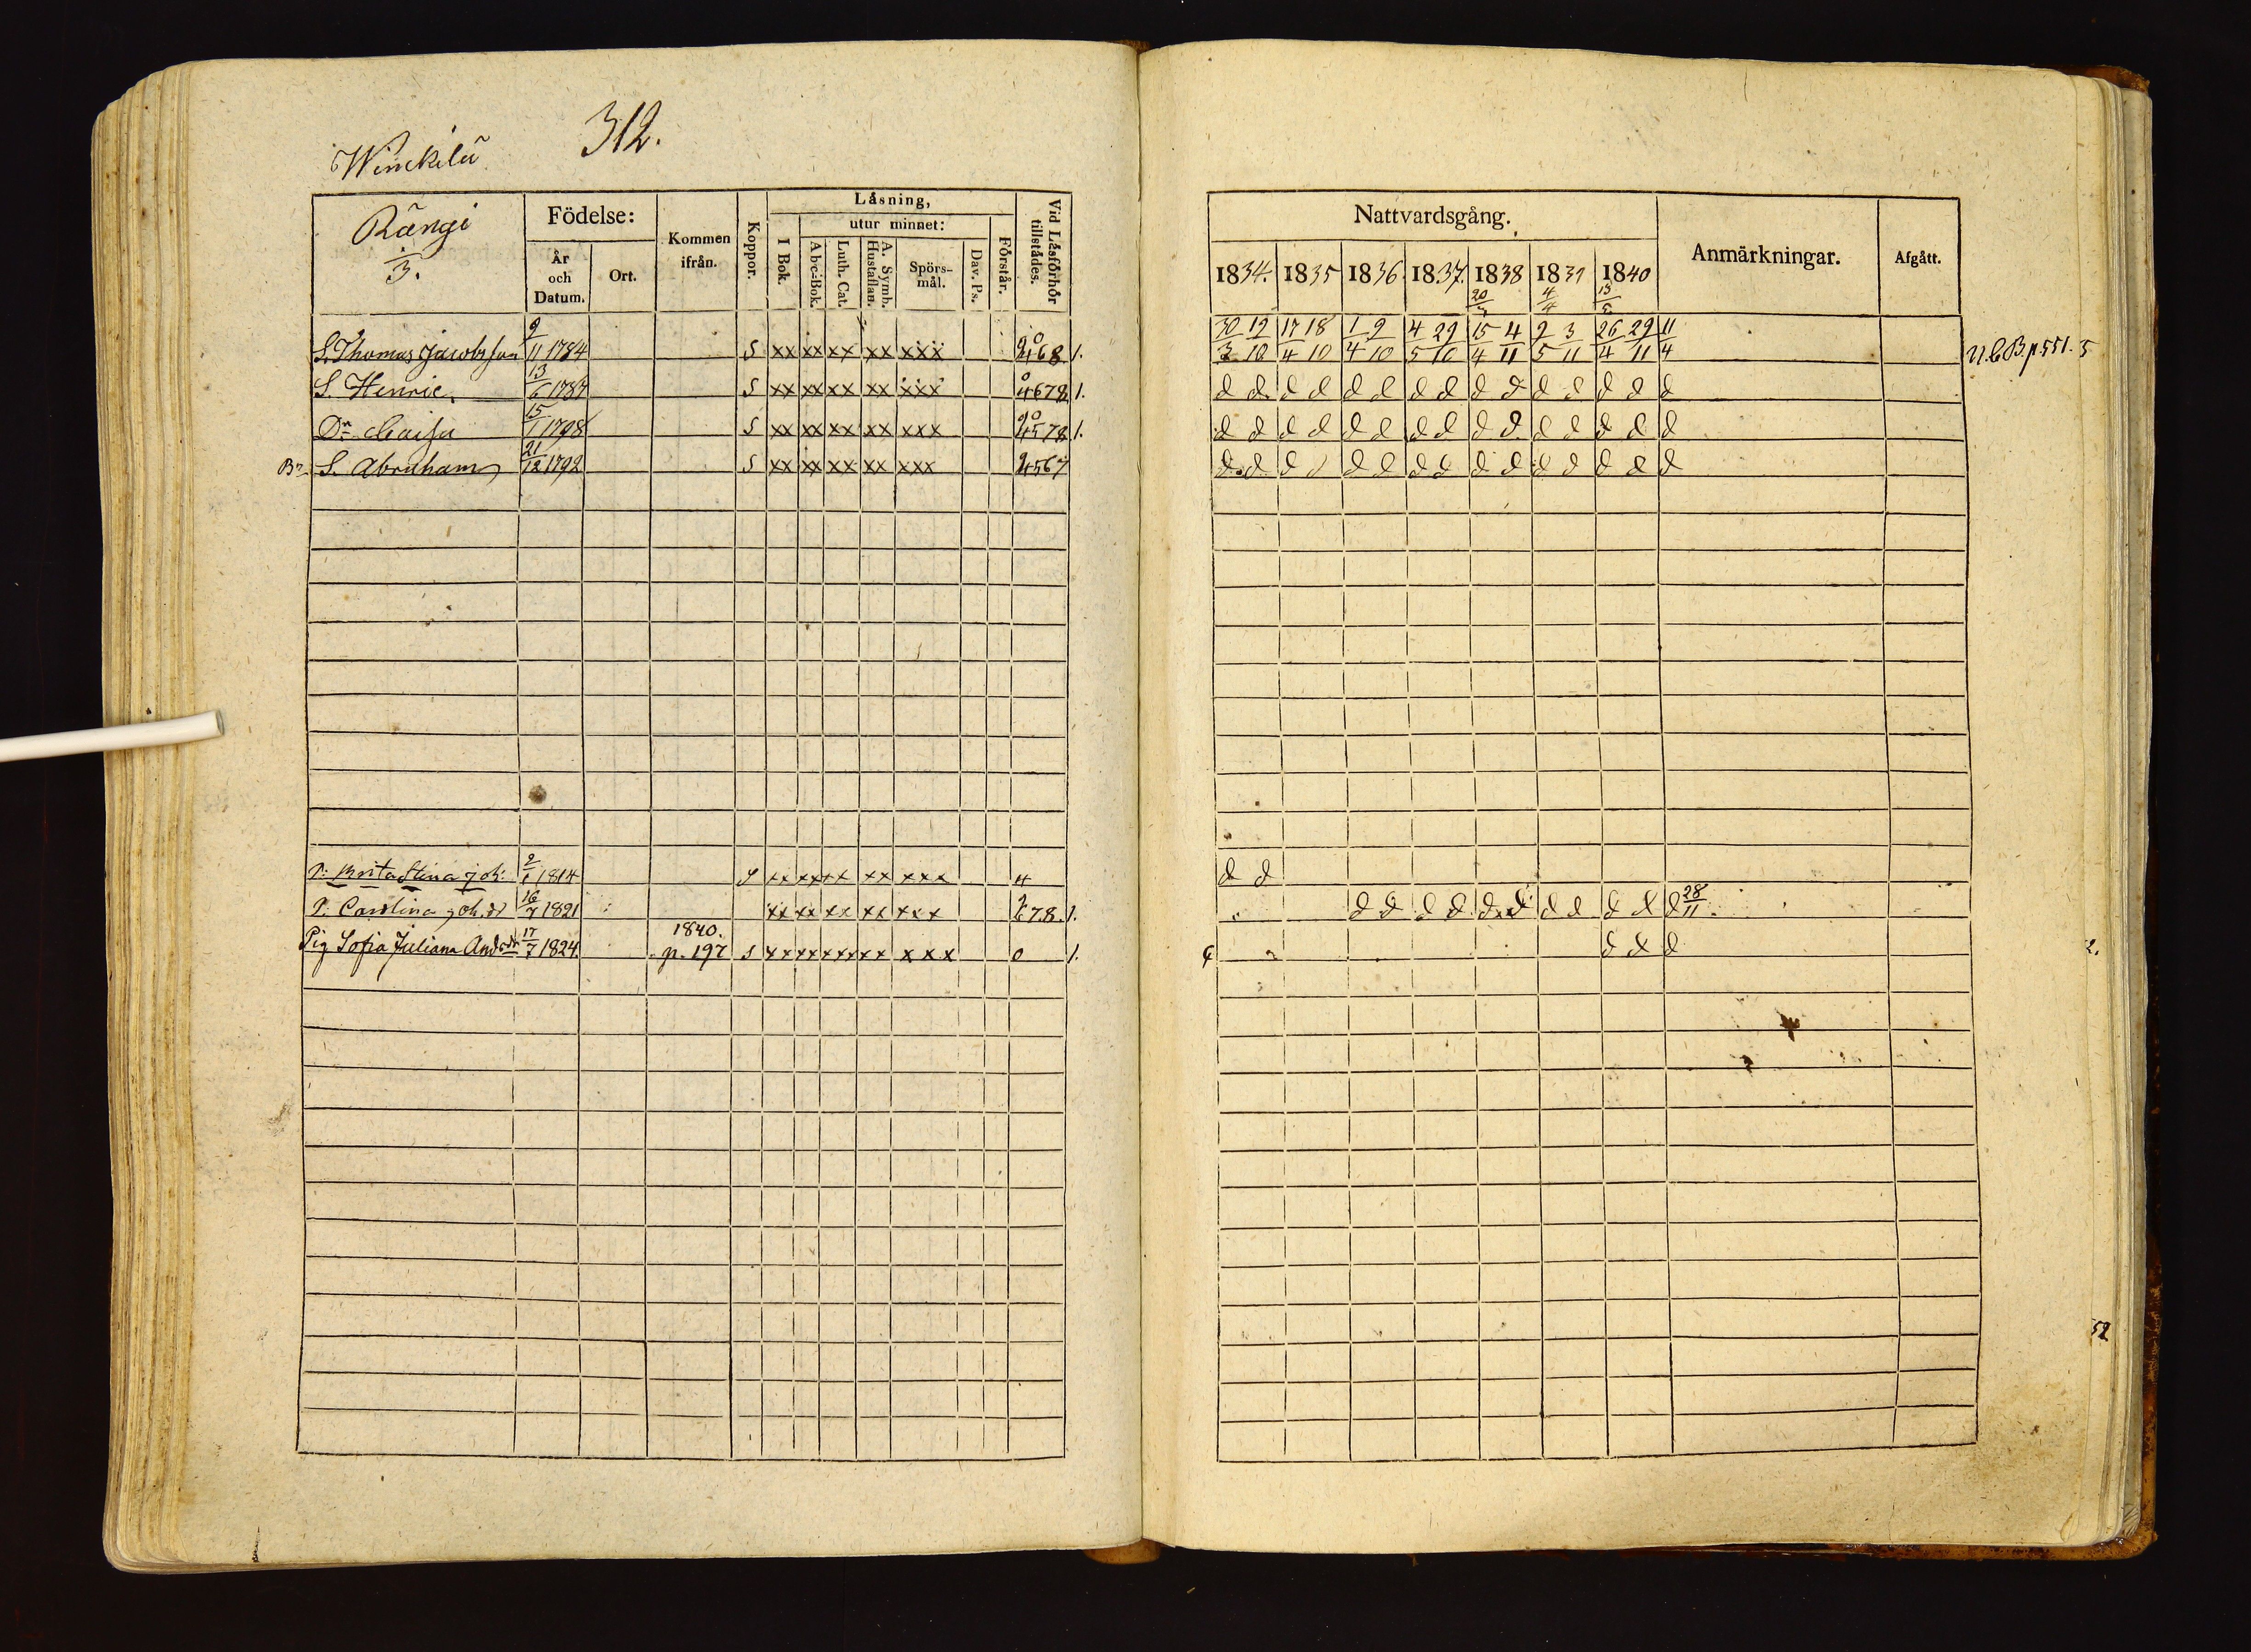 312.
Winckilä
Rängi
3.
Födelse:
År och Datum.
Ort.
Kommen ifrån.
Koppor.
Läsning,
utur minnet:
I Bok.
Abc-Bok.
Luth. Cat.
A. Symb. Hustaflan.
Spörs-mål.
Dav. Ps.
Förstår.
Vid Läsförhör tillstådes.
S. Thomas Jacobsson 9/11 1784 S xx xx xx xx xxx 468 1.
S. Henric 13/6 1787 S xx xx xx xx xxx 4678 1.
Dr Caisa 15/1 1798 S xx xx xx xx xxx 4578 1.
Br S. Abraham 21/12 1792 S xx xx xx xx xxx 4567
P. Brita Stina Joh: 2/1 1814 xx xx xx xx xxx 4
P. Carolina Joh. dr 16/7 1821 xx xx xx xx xxx 678. 1.
Pig Sofia Juliana And dr 17/7 1824. 1840. p. 197 s xx xx xx xx xxx 0 1.
Nattvardsgång.
Anmärkningar.
Afgått.
1834. 1835 1836. 1837. 1838 1839 1840
20/3 4/4 13/5
30/3 19/10 17/4 18/10 1/4 9/10 4/5 29/10 15/4 4/11 9/5 3/11 26/4 29/11 11/4
N.C.B. p. 551. 5
d d d d d d d d d d d d d d d
d d d d d d d d d d d d d d d
d d d d d d d d d d d d d d
d d
d d d d d d d d d d d 28/11.
d d d
2.
52